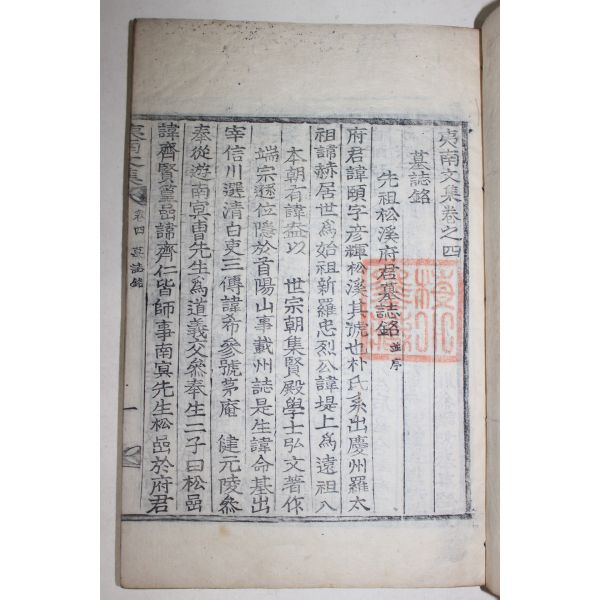 夷南文集卷之四
墓誌銘
先祖松溪府君墓誌銘 並序
府君諱頤字彦輝松溪其號也朴氏系出慶州羅太
祖諱赫居世爲始祖新羅忠烈公諱堤上爲遠祖入
本朝有諱益以 世宗朝集賢殿學士弘文著作
端宗遜位隱於首陽山事載州誌是生諱命基出
宰信川選清白吏三傳諱希參號茅庵 健元陵參
奉從遊南冥曺先生爲道義交參奉生二子曰松嵒
諱齊賢篁嵒諱齊仁皆師事南冥先生松嵒於府君
夷南文集 卷四 墓誌銘 一